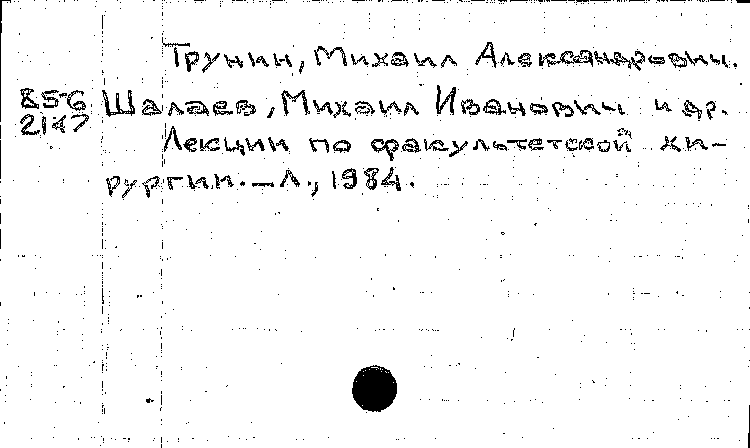 Трунин, Михаил Александрович.
85-6 Шалаев, Михаил Иванович и др.
Лекции по факультетской хи-
рургии. – Л., 1984.